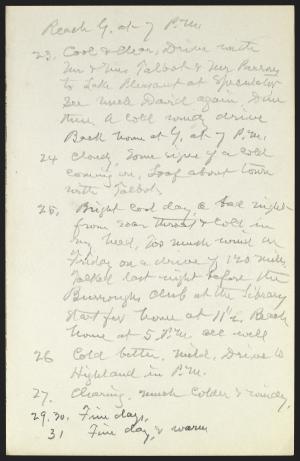 Reach G. at 7 P.M.
23. Cool & clear, Drive with
Mr & Mrs Talbot & Mr Parsons
to Lake Pleasant at Speculator
See Uncle David again, Dine
there. A cold windy drive
Back home at G. at 7 P.M.
24 Cloudy, Some signs of a cold
coming on, Loaf about town
with Talbot.
25. Bright cool day, a bad night
from sore throat & cold in
my head, too much wind on
Friday on a drive of 120 miles,
Talked last night before the
Burroughs Club at the library
Start for home at 11½, Back
home at 5 P.M. all well
26 Cold better, mild, Drive to
Highland in P.M.
27. Clearing, much colder & windy,
29.30. Fine days,
31 Fine day, & warm